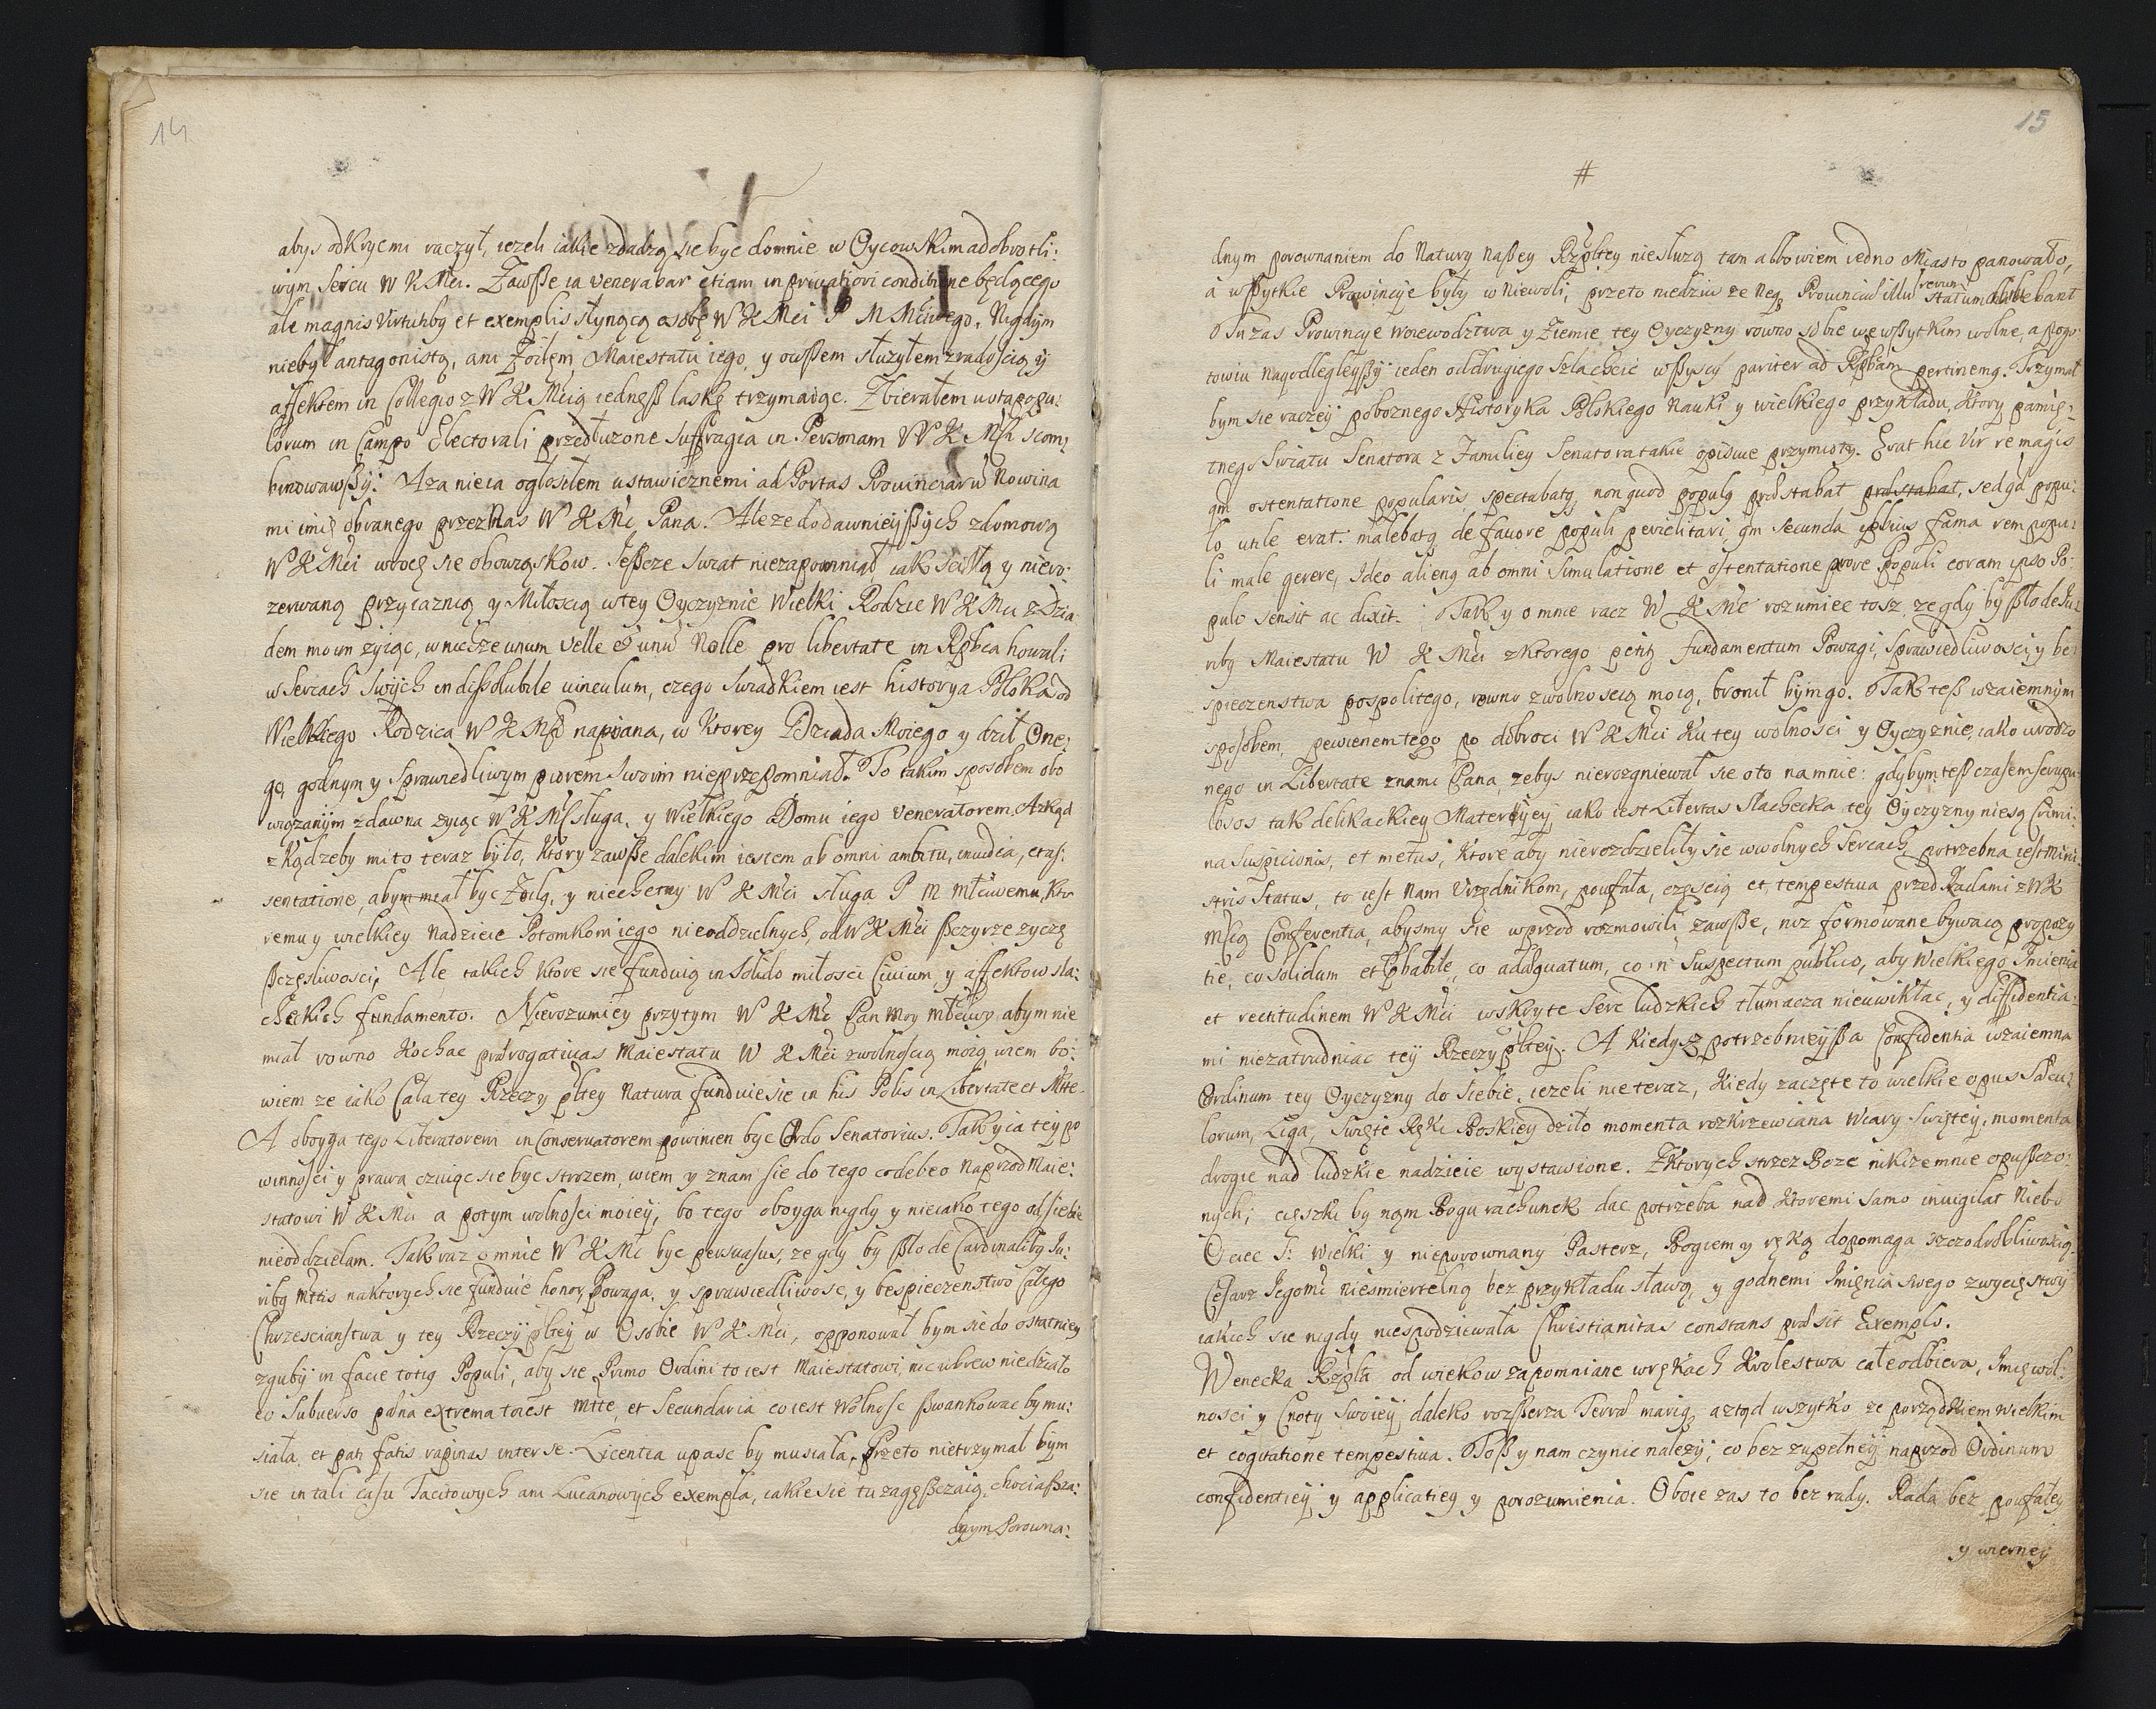 14
abys odkryc mi raczył, iezeli iakie zdadzą się byc do mnie w Oycowskim a dobrotli:
wym sercu W K Mci. Zawsze ia venerabar etiam in privatiori conditione będącego
ale magnis virtutibg et exemplis słynącą osobę W K Mci P M Mciwego. Nigdym
niebył antagonistą, ani Zoilem, Maiestatu iego, y owszem słuzyłem z radością y
affektem in Collegio z W K Mcią iednęß laskę trzymaiąc. Zbierałem usta popu:
lorum in Campo Electorali przedłuzone suffragia in Personam W K Msci scom:
binowawßy: Aza nie ia ogłosiłem ustawicznemi ad Portas Prouinciarũ Nowina
mi imię obranego przez Nas W K Mc Pana. Ale ze do dawnieyßych z domową
W K Mci wrocę się obowiąskow. Jeßcze swiat niezapomniał iak scisłą y niero:
zerwaną przyiaznią y Miłoscią w tey Oyczyznie Wielki Rodzic W K Mci z Dzia
dem moim zyiąc, w nichze unum velle & unũ Nolle pro libertate in Rpbca howali
w Sercach Swych indissolubile uinculum, czego swiadkiem iest historya Polska od
Wielkiego Rodzica W K Msci napisana, w ktorey Pradziada Moiego y dził One:
go, godnym y Sprawiedliwym piorem Swoim nieprzepomniał. To takim sposobem obo
wiązanym zdawna zyiąc W K Msci sługa, y Wielkiego Domu iego veneratorem, A zkąd
zkąd zeby mi to teraz było, ktory zawsze dalekim iestem ab omni ambitu, inuidia, et as:
sentatione, abym miał byc Zoilg, y niechetny W K Mci sługa P M Mciwemu, kto
remu y wielkiey Nadzieie Potomkom iego nieoddzielnych, od W K Mci ßczyrze zyczę
ßczęsliwosci, Ale takich ktore sie funduią in Solido miłosci Ciuium, y affektow sla:
checkich fundamento. Nierozumiey przytym W K Mc Pan Moy Mciwy, abym nie
miał rowno kochac prærogatiuas Maiestatu W K Mci z wolnoscią moią, wiem bo:
wiem ze iako Cała tey Rzeczy pltey Natura funduie sie in his Polis in Libertate et Mtte.
A oboyga tego Liberatorem in Conseruatorem powinien byc Ordo Senatorius. Tak y ia tey po
winnosci y prawa czuiąc sie byc strozem, wiem y znam sie do tego co debeo Naprzod Maie:
statowi W K Mci a potym wolnosci moiey, bo tego oboyga nigdy y nieiako tego od siebie
nieoddzielam. Tak raz o mnie W K Mc byc persuasus, ze gdy by ßlo de Cardinalibg Iu:
ribg Mttis na ktorych sie funduie honor, Powaga, y sprawiedliwosc, y bespieczenstwo całego
Chrzescianstwa y tey Rzeczy pltey w Osobie W K Mci, opponował bym sie do ostatniey
zguby in facie totig Populi, aby sie Primo Ordini to iest Maiestatowi, nic wbrew niedziało
eo Subuerso pæna extrema to iest Mtte, et Secundaria co iest Wolnosc ßwankowac by mu:
siała, et pari fatis rapinas inter se. Licentia upasc by musiała, Przeto nietrzymał bym
sie in tali casu Tacitowych ani Lucanowych exempla, iakie sie tu zagęßczaią, chociaß za:
dnym Porowna:
15
#
dnym porownaniem do Natury Naßey Rzpltey niesłuzą tam albowiem iedno Miasto panowało,
a wßytkie Prowincye były w Niewoli, przeto niedziw ze Neq Prouinciæ illũ rerum statum abnuebant
Tu zas Prowincye Woiewodztwa y Ziemie tey Oyczyzny rowno sobie we wßytkim wolne, a pogo
towiu Nayodlegleyßy ieden od drugiego Szlachcic wßyscy pariter ad Rpbcam pertinemg. Trzymał
bym sie raczey poboznego Historyka Polskiego Nauki y wielkiego przykładu, ktory pamię:
tnego Swiatu Senatora z Familiey Senatora takie opisuie przymioty. Erat hic Vir re magis
qm ostentatione popularis, spectabatg, non quod populg præstabat præstabat, sed qd popu:
lo utile erat: malebatg de fauore populi periclitari, qm secunda ipsius fama rem popu:
li male gerere, Ideo alieng ab omni Simulatione et ostentatione prore Populi coram ipso Po:
pulo sensit ac dixit. Tak y o mnie racz W K Mc rozumiec tosz ze gdy by ßlo de Iu:
ribg Maiestatu W K Mci z ktorego petitg fundamentum Powagi, Sprawiedliwosci, y be:
spieczenstwa pospolitego, rowno z wolnoscią moią, bronił bym go. Tak teß wzaiemnym
sposobem, pewienem tego po dobroci W K Mci ku tey wolnosci y Oyczyznie, iako urodzo
nego in Libertate z nami Pana, zebys nierozgniewał sie oto na mnie: gdy bym teß czasem scrupu:
losos tak delikackiey Materyey, iako iest Libertas Slachecka tey Oyczyzny niesą Crimi:
na Suspicionis, et metus, ktore aby nierozdzieliły sie w wolnych Sercach, potrzebna iest Mini:
stris Status, to iest Nam Urzędnikom, poufała, częscią et tempestiua przed Radami z W K
Mscią Conferentia, abysmy sie wprzod rozmowili zawsze, niz formowane bywaią propozy
tie, co solidum et Pbabile, co adæquatum, co ñ Suspectum publico, aby Wielkiego Imienia
et rectitudinem W K Mci w skryte Serc ludzkich tłumacza nieuwikłac, y diffidentia:
mi niezatrudniac tey Rzeczy pltey. A kiedyß potrzebnieyßa Confidentia wzaiemna
Ordinum tey Oyczyzny do Siebie, iezeli nie teraz, kiedy zaczęte to wielkie opus Sæcu:
lorum, Liga, Swięte Ręki Boskiey dziło momenta rozkrzewiana Wiary Swiętey, momenta
drogie nad ludzkie nadzieie wystawione. Z ktorych strzez Boze nikczemnie opußczo:
nych, cięszki by nąm Bogu rachunek dac potrzeba nad ktoremi samo inuigilat Niebo
Ociec S: Wielki y nieporownany Pasterz, Bogiem y ręką dopomaga szczodrobliwoscią.
Cesarz Jegomc niesmiertelną bez przykładu sławą, y godnemi Imienia swego zwycięstwy
iakich sie nigdy niespodziewała Christianitas constans præsit Exemplo.
Wenecka Rzplta od wiekow zapomniane w rękach Krolestwa całe odbiera, Imię wol:
nosci y Cnoty Swoiey daleko rozßerza Terrâ mariq, a ztąd wszytko ze porządkiem wielkim
et cogitatione tempestiua. Toß y nam czynic nalezy, co bez zupełney naprzod Ordinum
confidentiey y applicatiey y porozumienia. Oboie zas to bez rady. Rada bez poufałey
y wierney